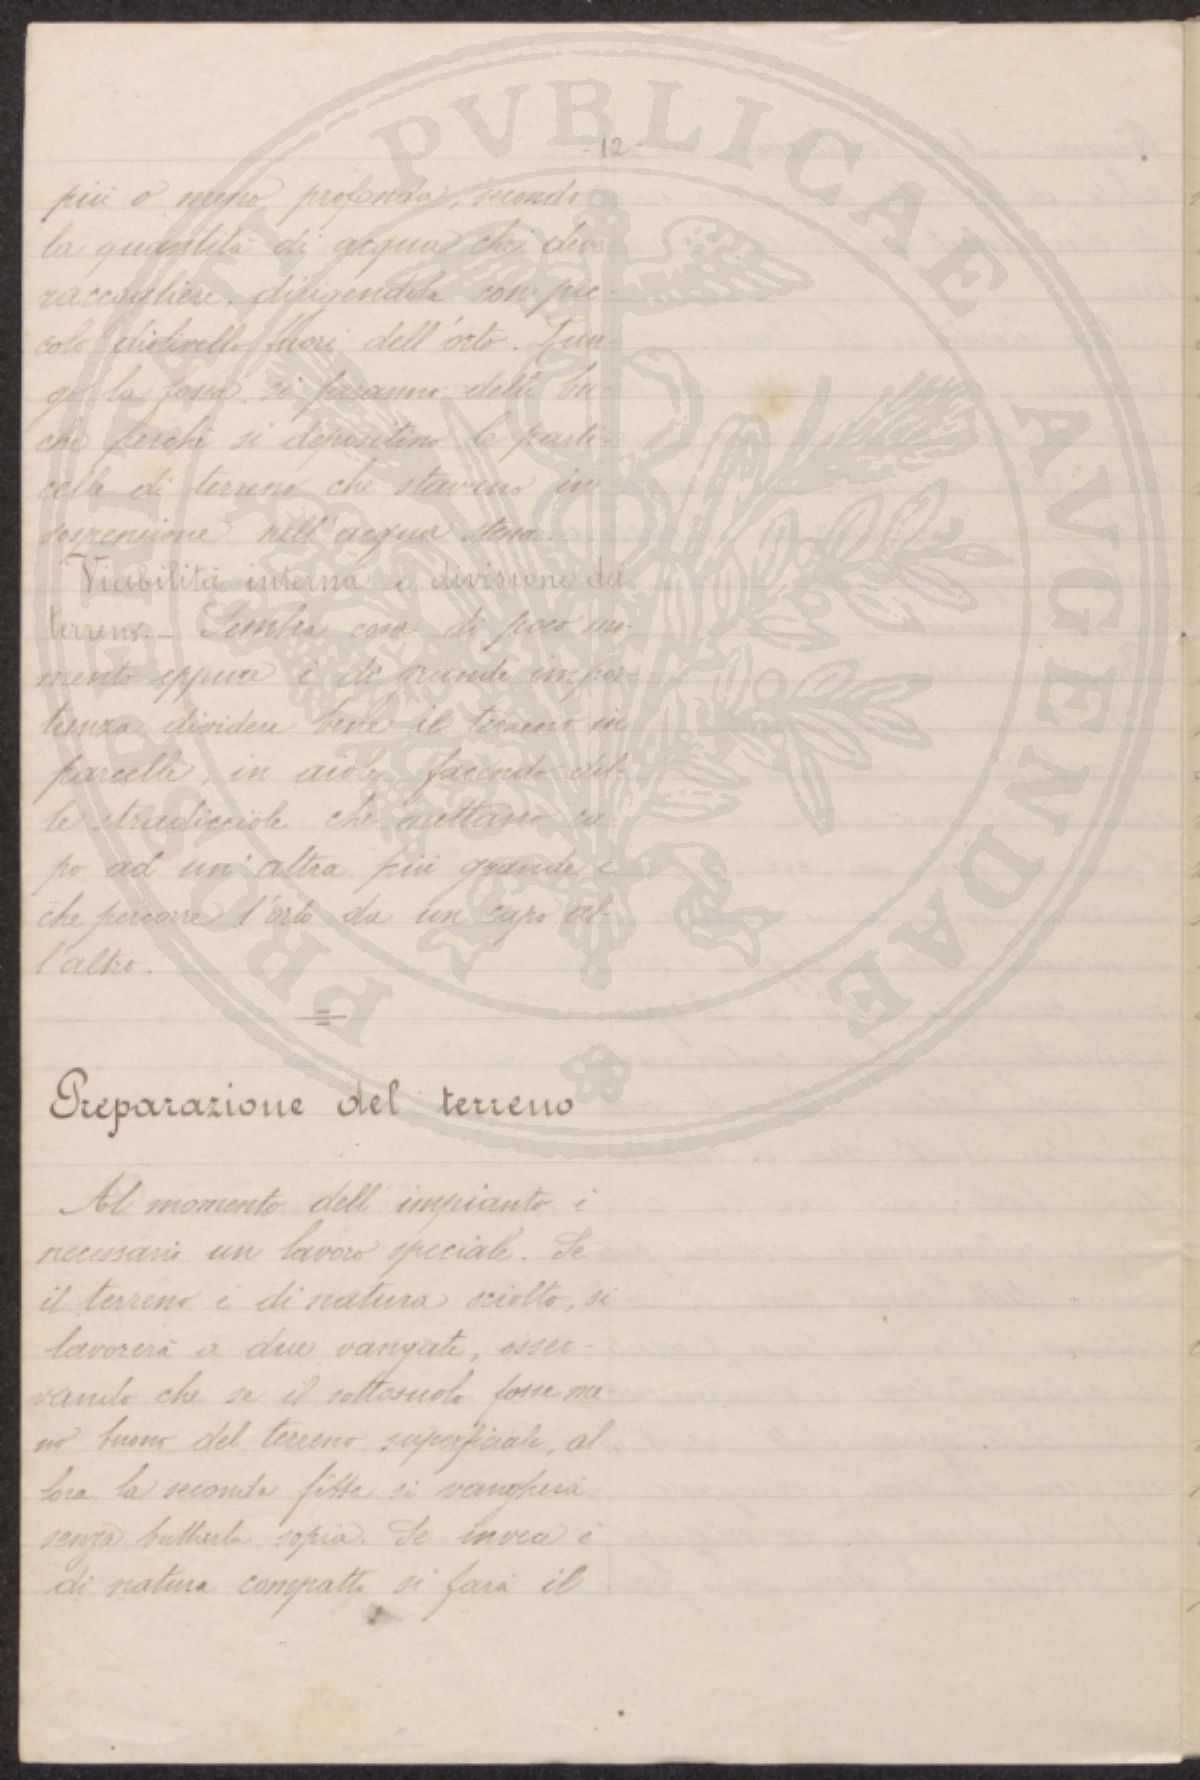 12
più o meno profonda, secondo
la quantità di acqua che deve
raccogliere, dirigendola con pic-
colo dislivello fuori dell'orto. Lun-
go la fossa si faranno delle bu-
che perchè si depositino le parti-
celle di terreno che stavano in
sospensione nell'acqua stessa.
Viabilità interna e divisione del
terreno. - Sembra cosa di poco mo-
mento eppure è di grande impor-
tanza dividere bene il terreno in
parcelle, in aiole, facendo del-
le stradicciole che mettano ca
po ad un'altra più grande e
che percorre l'orto da un capo al-
l'altro.
=
Preparazione del terreno
Al momento dell'impianto è
necessario un lavoro speciale. Se
il terreno è di natura sciolto, si
lavorerà a due vangate, osser-
vando che se il sottosuolo fosse me-
no buono del terreno superficiale, al
lora la seconda fitta si vangherà
senza butturla sopra. Se invece è
di natura compatto si farà il
PVBLICAE AVGENDAE PROSPERITATI